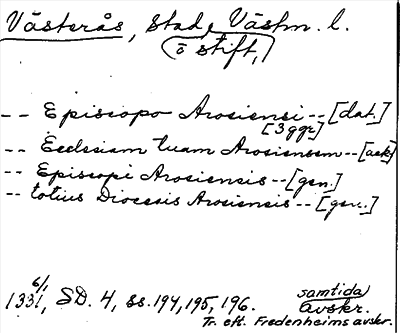 Västerås, stad, Västm. l.
(o stift,)
-- Episcopo Arosiensi -- [dat.]
[3 ggr]
-- Ecclesiam tuam Arosiensem -- [ack]
-- Episcopi Arosiensis -- [gen.]
-- totius Diocesis Arosiensis -- [gen.]
6/1
1331, SD. 4, ss. 194, 195, 196. samtida avskr.
Tr. eft. Fredenheims avskr.